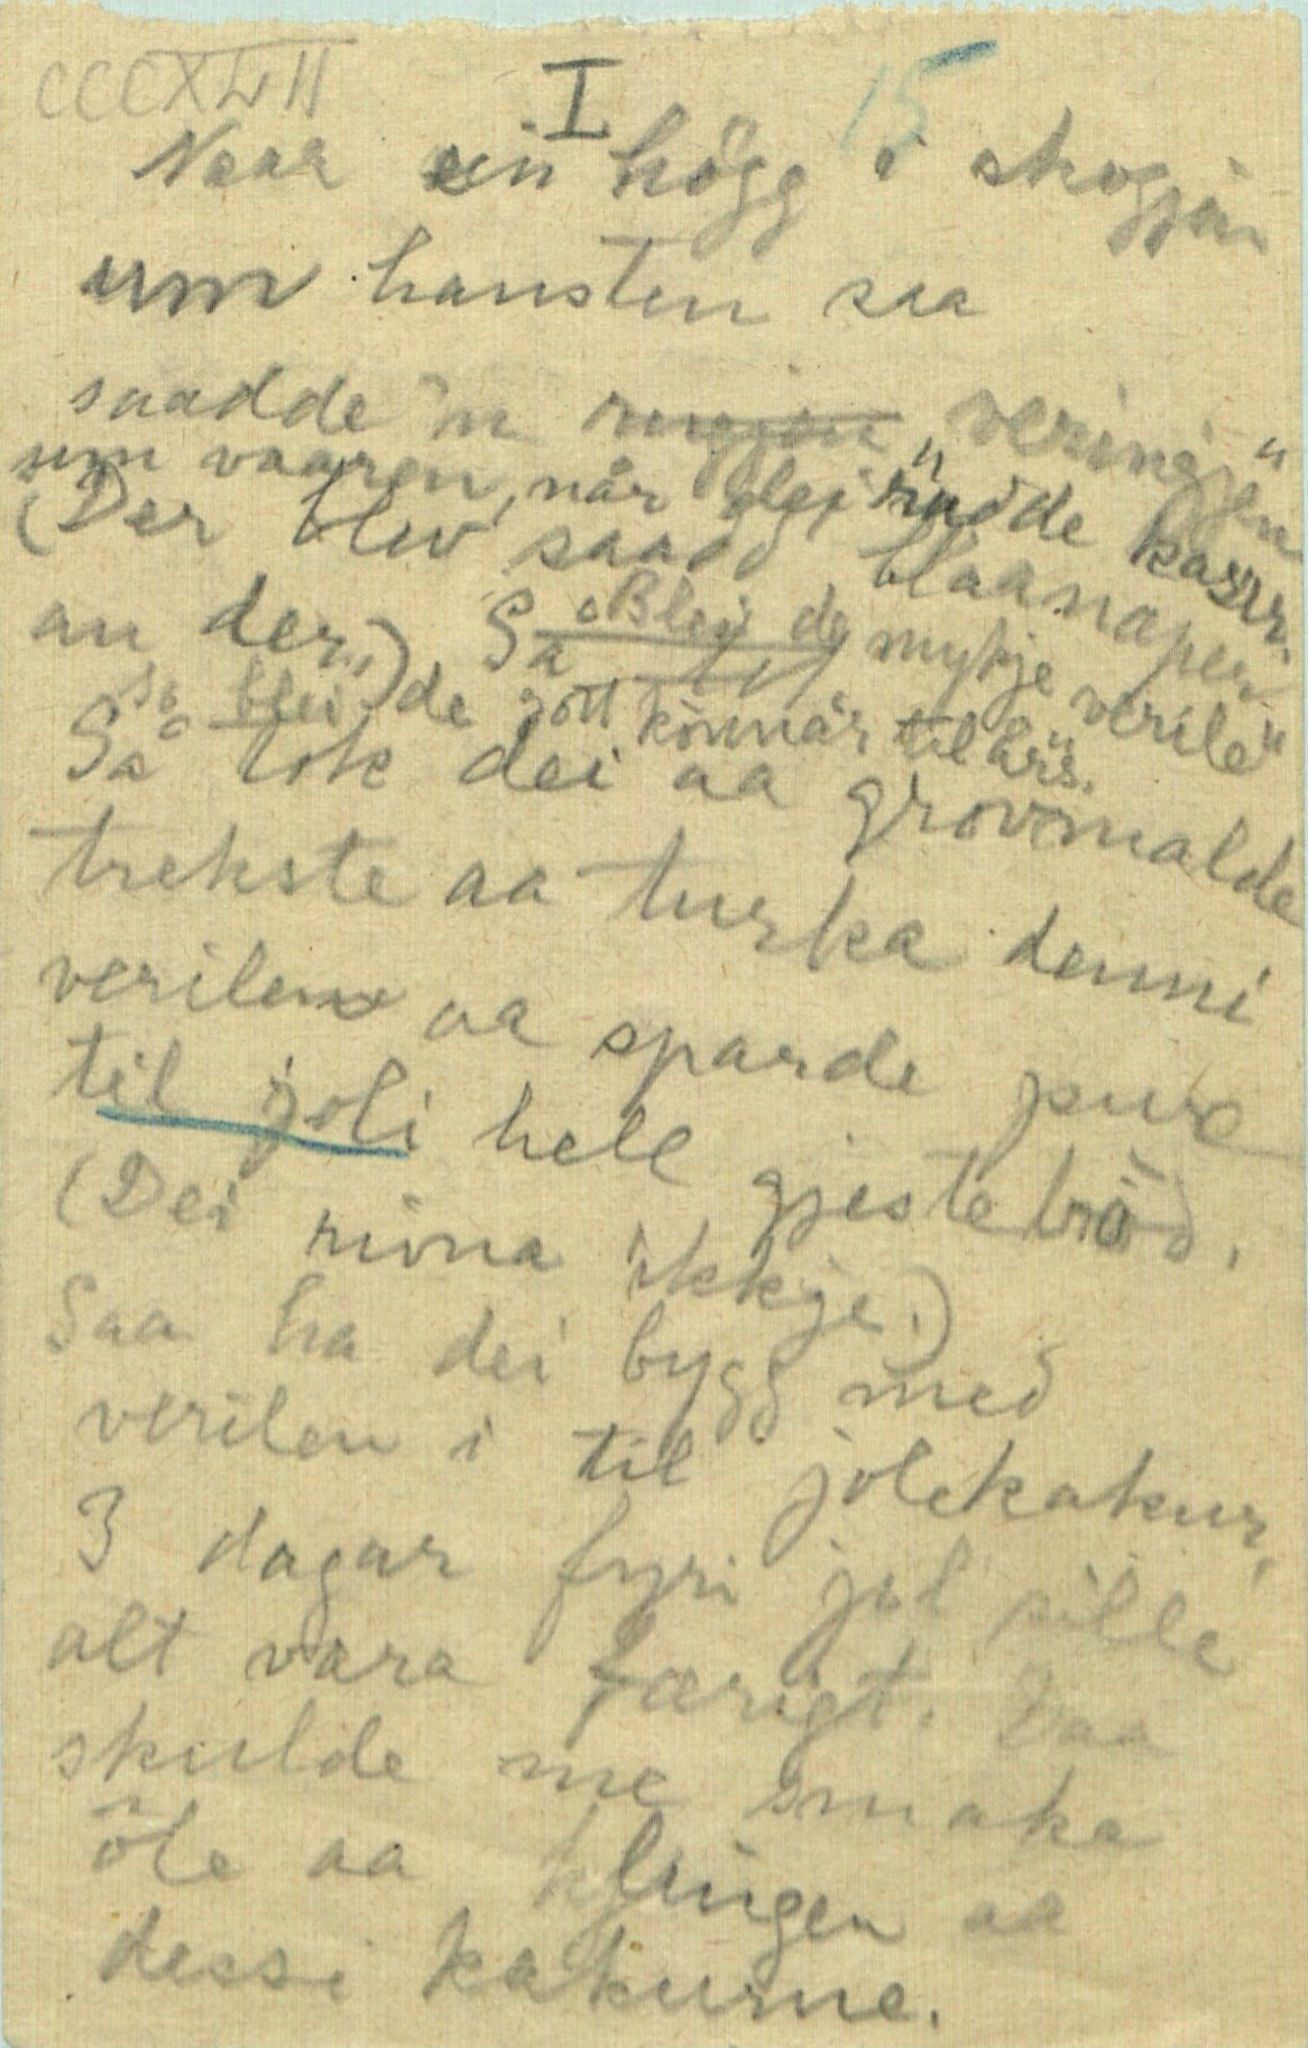 CCCXLII
I 15
Naar ein högg i skogjen
um hausten saa
saadde 'n rugjen "veringjen"
um vaaren, når dei rudde kasir.
(Der blev saadd blaanaper
an der.) Så Blei de mykje verile"
so blei de gott könnår til års.
Sa tok dei aa grovmalde
trekste aa turka denni
verilen aa sparde
til joli hell gjestebröd.
(Dei rivna ikkje.)
Saa ha dei bygg med
verilen i til jolekakur,
3 dagar fyri jol sille
alt vara færigt. Daa
skulde me smaka
öle aa klingen aa
dessi kakurne.